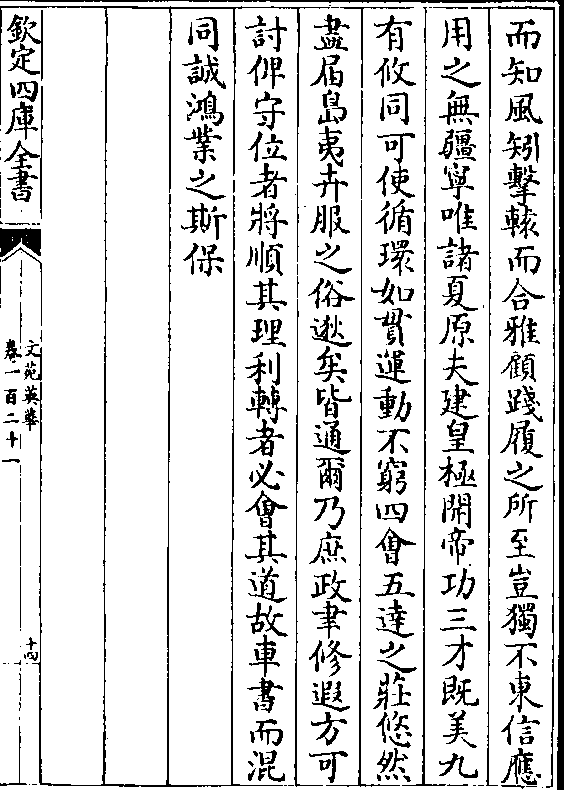 而知風矧擊轅而合雅顧踐履之所至豈獨不東信應
用之無疆寧唯諸夏原夫建皇極開帝功三才既美九
有攸同可使循環如貫運動不窮四會五達之莊悠然
盡届島夷卉服之俗逖矣皆通爾乃庶政聿修遐方可
討俾守位者將順其理利轉者必會其道故車書而混
同誠鴻業之斯保
欽定四庫全書
文苑英華
卷一百二十一
十四